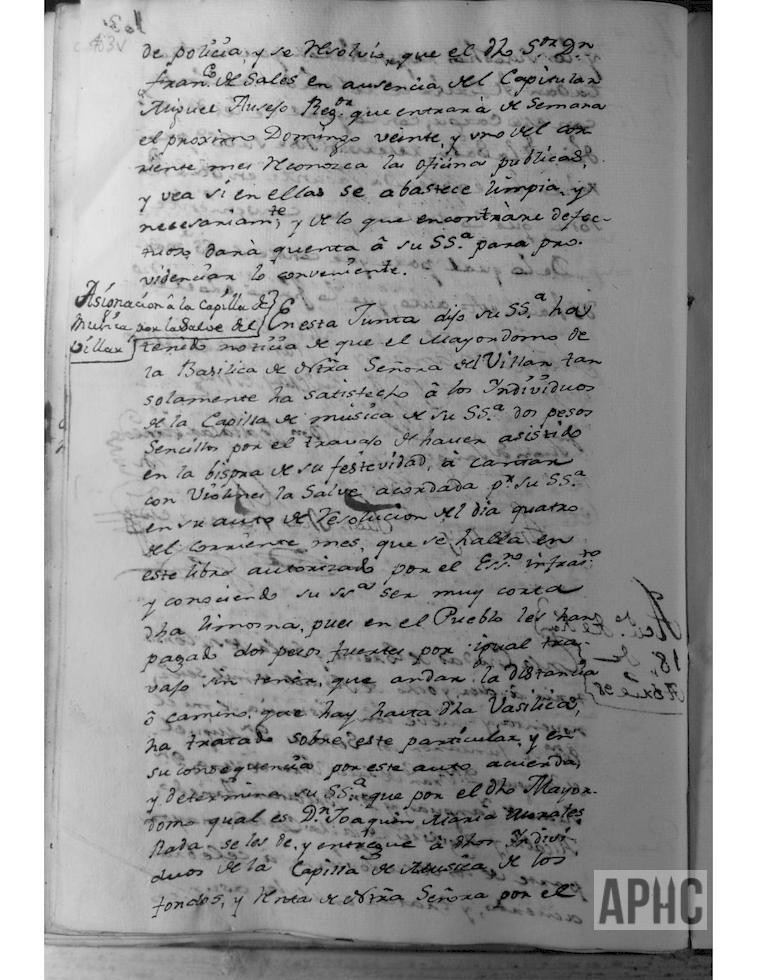 103v
de policia, y se resolvio, que el dho Sor Dn
Franco de Sales en ausencia del Capitular
Miguel Ausejo Regor que entrarà de semana
el proximo Domingo veinte, y uno del cor
riente mes reconozca las oficinas publicas,
y vea si en ellas se abastece limpia, y
necesariamte, y de lo que encontràre defec-
tuoso darà quenta â su SSa para pro-
videnciar lo conveniente.
Asignacion â la Capilla de
Musica por la Salve del
Villar
En esta Junta dijo su SSa ha
tenido noticia de que el Mayordomo de
la Basilica de Ntra Señora del Villar tan
solamente ha satisfecho â los Individuos
de la Capilla de musica de su SSa dos pesos
sencillos por el travajo de haver asistido
en la bispra de su festevidad, à cantar
con Violines la Salve acordada pr su SSa
en su auto de resolucion del dia quatro
del corriente mes, que se halla en
este libro autorizado por el Essno infrato
y conociendo su SSa ser muy corta
dha limosna, pues en el Pueblo les han
pagado dos pesos fuertes por igual tra-
vajo sin tener, que andar la distancia
ô camino, que hay hasta dha Vasilica,
ha tratado sobre este particular, y en
su consequencia por este auto acuerda,
y determina su SSa que por el dho Mayor-
domo qual es Dn Joaquin Maria Morales
Rada se les de, y entregue â dhos Indivi-
duos de la Capilla de Musica de los
fondos, y renta de Ntra Señora por el
APHC